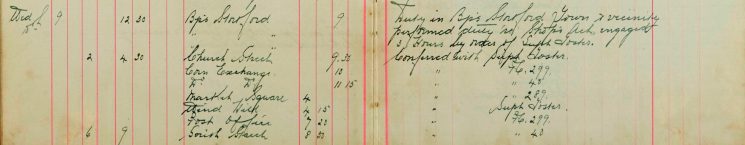 Wed 9 12 30 Bp's Stortford 9 Duty in Bp's Stortford Town & vicinity
performed duty Shops Act, engaged
3 Hours by order of Supt. Foster.
2 4 30 Church Street 9.30 Conferred with Supt. Foster.
Corn Exchange. 10 " P.C. 299.
Do Do 11 15 " " 43
Market Square 4 " " 289.
Wind Hill 4 15 " Supt Foster.
Post Office 7 20 " P.C. 299.
6 9 South Street 8 30 " " 43